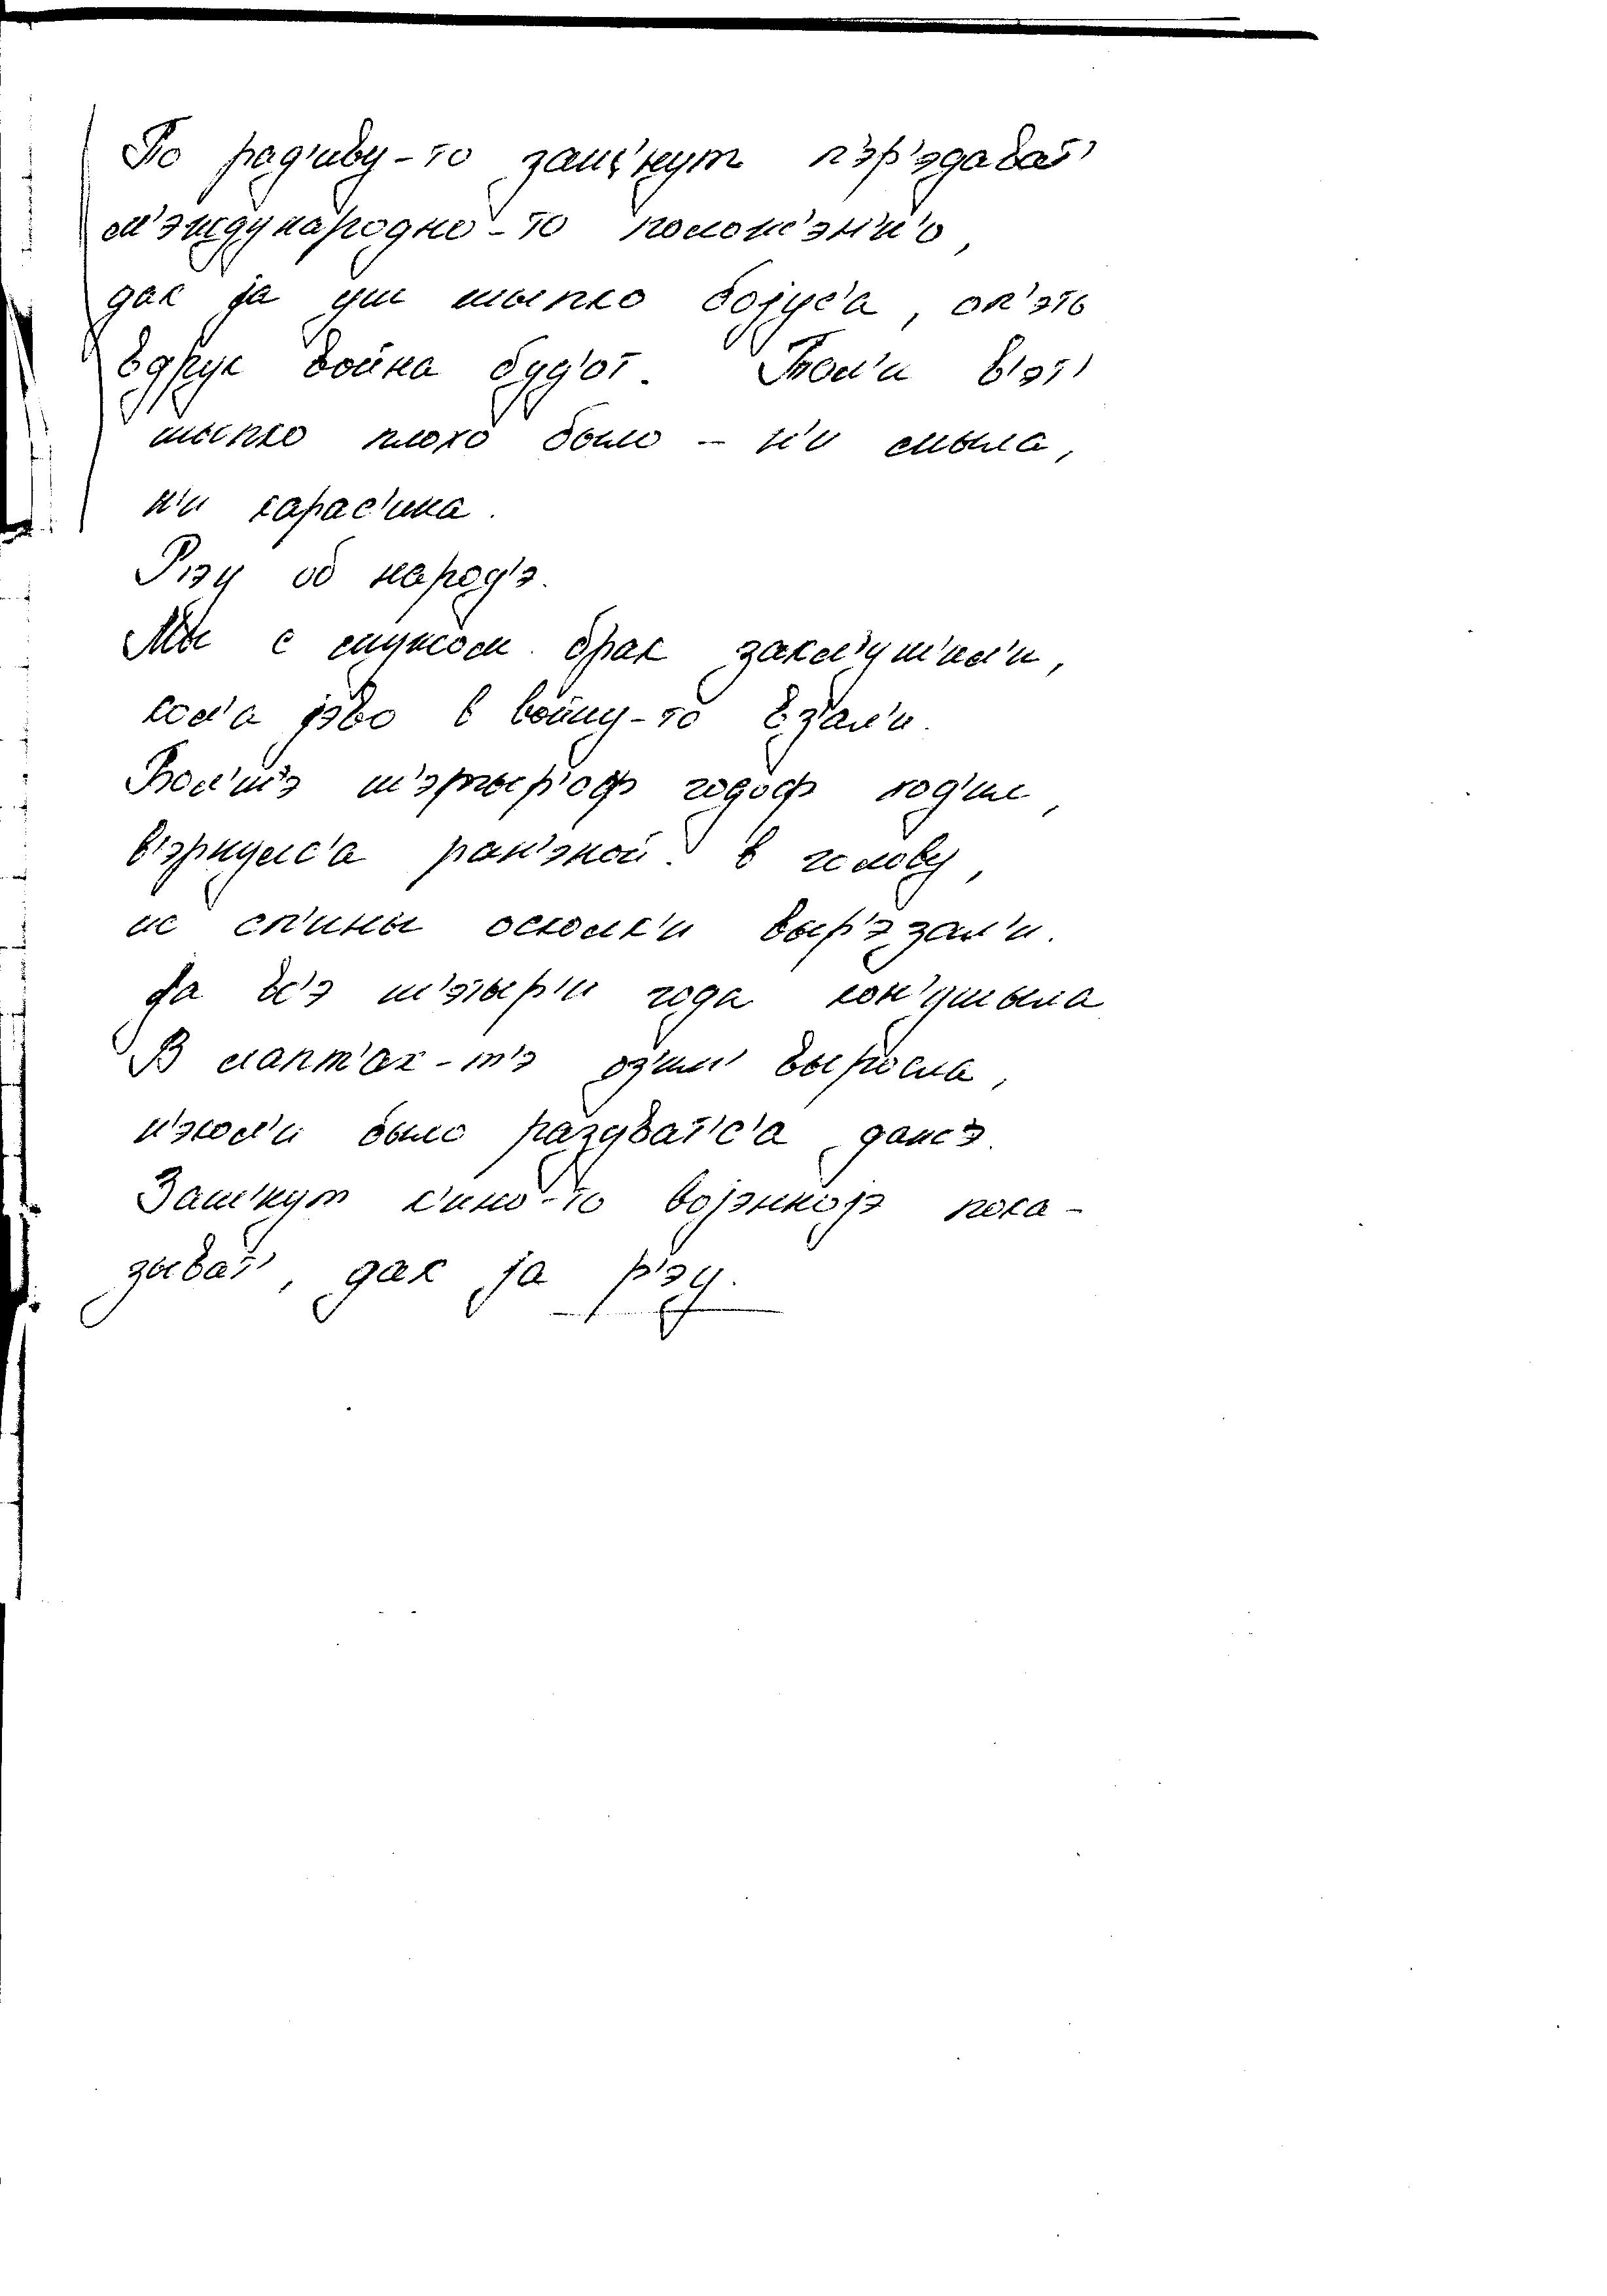 По рад'иву-то заш'нут п'эр'эдават'
м'эждународно-то положэн'н'о,
дак ja уш шыпко бojус'а, оп'эть
вдрук война буд'от. Тол'и в'эт'
шыпко плохо было – н'и мыла,
н'и карас'ина.
Р'эу об народ'э.
Мы с мужом брак закл'уш'ил'и,
кол'а jэво в войну-то вз'ал'и.
Бол'шэ ш'этыр'оф годоф ход'ил,
в'эрнулс'а ран'эной в голову,
ис сп'ины осколк'и выр'эзал'и.
Ja вс'э ш'этыр'и года кон'ушыла
В лапт'ах-т'э оз'ил' выросла,
н'экол'и было разуват'с'а дажэ.
Заш'нут к'ино-то воjэнноjэ пока-
зыват', дак ja р'эу.